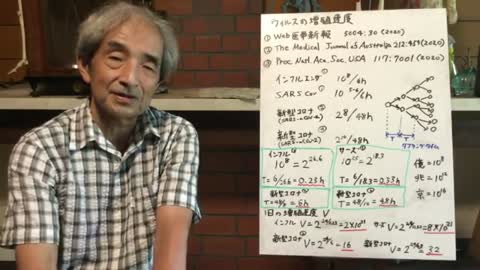 ウィルスの増殖速度
① Web医事新報 5004:30 (2020)
② The Medical Journal of Australia 212:459 (2020)
③ Proc. Natl. Aca. Soc. USA 117:7001 (2020)
インフルエンザ 10⁸/6h
SARS Cov
新型コロナ
(SARS-Cov-2) 2⁸/48h
新型コロナ
(SARS-Cov-2) 2¹⁰/48h
T T
ダブリングタイム
インフル
10⁸ = 2^26.6
T = 6/26.6 = 0.23h
サーズ
10^5.5 = 2^18.3
T = 6/18.3 = 0.33h
新型コロナ
T = 48/8 = 6h
新型コロナ
T = 48/10 = 4.8h
億 = 10⁸
兆 = 10¹²
京 = 10¹⁶
1日の増殖速度 V
インフル V = 2^24/0.23 = 2×10³¹
サーズ V = 2^24/0.33 = 8×10²¹
新型コロナ V = 2^24/6 = 16
新型コロナ V = 2^24/4.8 = 32